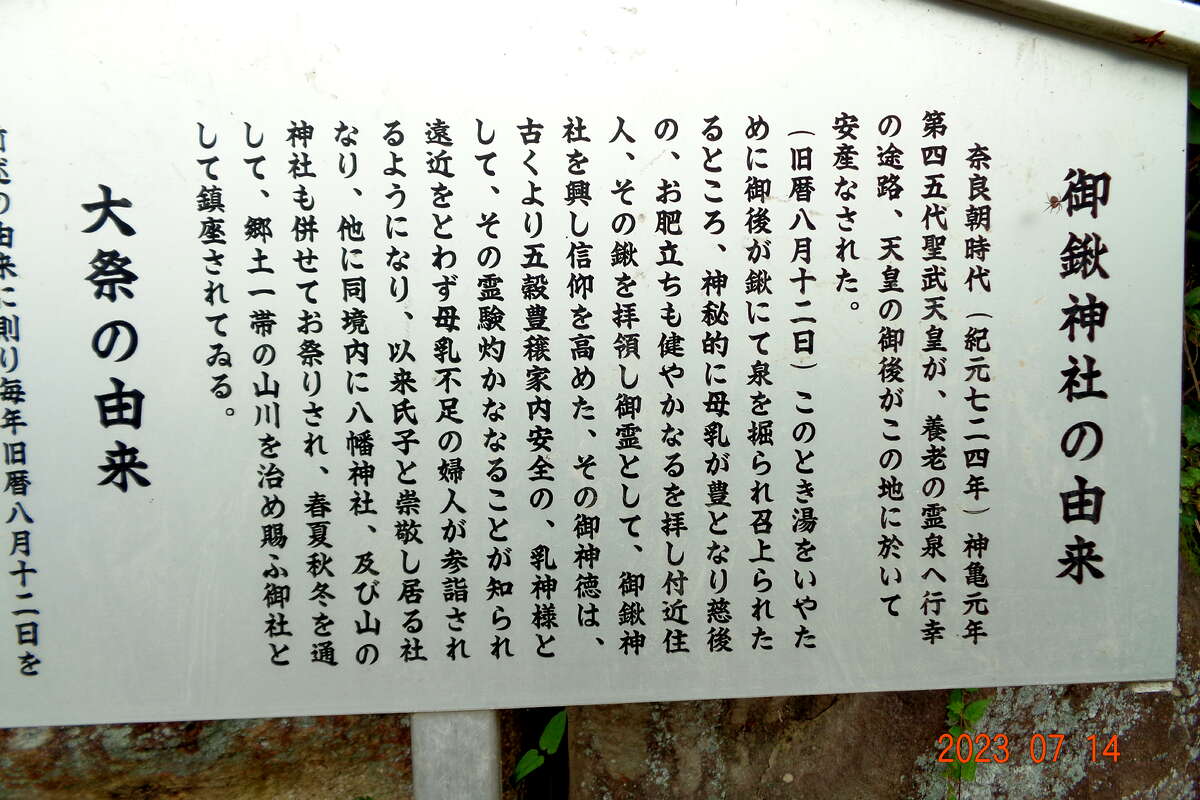 御鍬神社の由来
奈良朝時代（紀元七二四年）神亀元年
第四五代聖武天皇が、養老の霊泉へ行幸
の途路、天皇の御後がこの地に於いて
安産なされた。
（旧暦八月十二日）このとき湯をいやた
めに御後が鍬にて泉を掘られ召上られた
るところ、神秘的に母乳が豊となり慈後
の、お肥立ちも健やかなるを拝し付近住
人、その鍬を拝領し御霊として、御鍬神
社を興し信仰を高めた、その御神徳は、
古くより五穀豊穣家内安全の、乳神様と
して、その霊験灼かななることが知られ
遠近をとわず母乳不足の婦人が参詣され
るようになり、以来氏子と崇敬し居る社
なり、他に同境内に八幡神社、及び山の
神社も併せてお祭りされ、春夏秋冬を通
して、郷土一帯の山川を治め賜ふ御社と
して鎮座されてゐる。
大祭の由来
前述の由来に則り毎年旧暦八月十二日を
2023 07 14